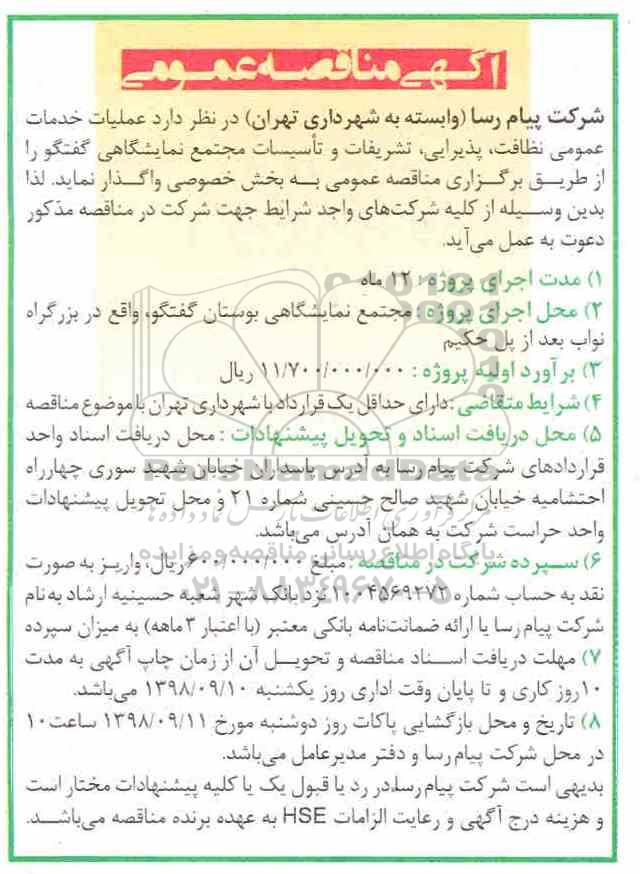 آگهی مناقصه عمومی
شرکت پیام رسا (وابسته به شهرداری تهران) در نظر دارد عملیات خدمات
عمومی نظافت، پذیرایی، تشریفات و تأسیسات مجتمع نمایشگاهی گفتگو را
از طریق برگزاری مناقصه عمومی به بخش خصوصی واگذار نماید. لذا
بدین وسیله از کلیه شرکت‌های واجد شرایط جهت شرکت در مناقصه مذکور
دعوت به عمل می‌آید.
۱) مدت اجرای پروژه: ۱۲ ماه
۲) محل اجرای پروژه : مجتمع نمایشگاهی بوستان گفتگو، واقع در بزرگراه
نواب بعد از پل حکیم
۳) برآورد اولیه پروژه : ۱۱/۷۰۰/۰۰۰/۰۰۰ ریال
۴) شرایط متقاضی : دارای حداقل یک قرارداد با شهرداری تهران با موضوع مناقصه
۵) محل دریافت اسناد و تحویل پیشنهادات : محل دریافت اسناد واحد
قراردادهای شرکت پیام رسا به آدرس پاسداران خیابان شهید سوری چهارراه
احتشامیه خیابان شهید صالح حسینی شماره ۲۱ و محل تحویل پیشنهادات
واحد حراست شرکت به همان آدرس می‌باشد.
۶) سپرده شرکت در مناقصه : مبلغ ۶۰۰/۰۰۰/۰۰۰ ریال، واریز به صورت
نقد به حساب شماره ۱۰۰۴۵۶۹۲۷۲ نزد بانک شهر شعبه حسینیه ارشاد به نام
شرکت پیام رسا یا ارائه ضمانت‌نامه بانکی معتبر (با اعتبار ۳ ماهه) به میزان سپرده
۷) مهلت دریافت اسناد مناقصه و تحویل آن از زمان چاپ آگهی به مدت
۱۰ روز کاری و تا پایان وقت اداری روز یکشنبه ۱۳۹۸/۰۹/۱۰ می‌باشد.
۸) تاریخ و محل بازگشایی پاکات روز دوشنبه مورخ ۱۳۹۸/۰۹/۱۱ ساعت ۱۰
در محل شرکت پیام رسا و دفتر مدیرعامل می‌باشد.
بدیهی است شرکت پیام رسا، در رد یا قبول یک یا کلیه پیشنهادات مختار است
و هزینه درج آگهی و رعایت الزامات HSE به عهده برنده مناقصه می‌باشد.
ParsNamadData
پایگاه اطلاع رسانی مناقصه و مزایده
۰۲۱-۸۸۳۴۹۶۷۰-۵